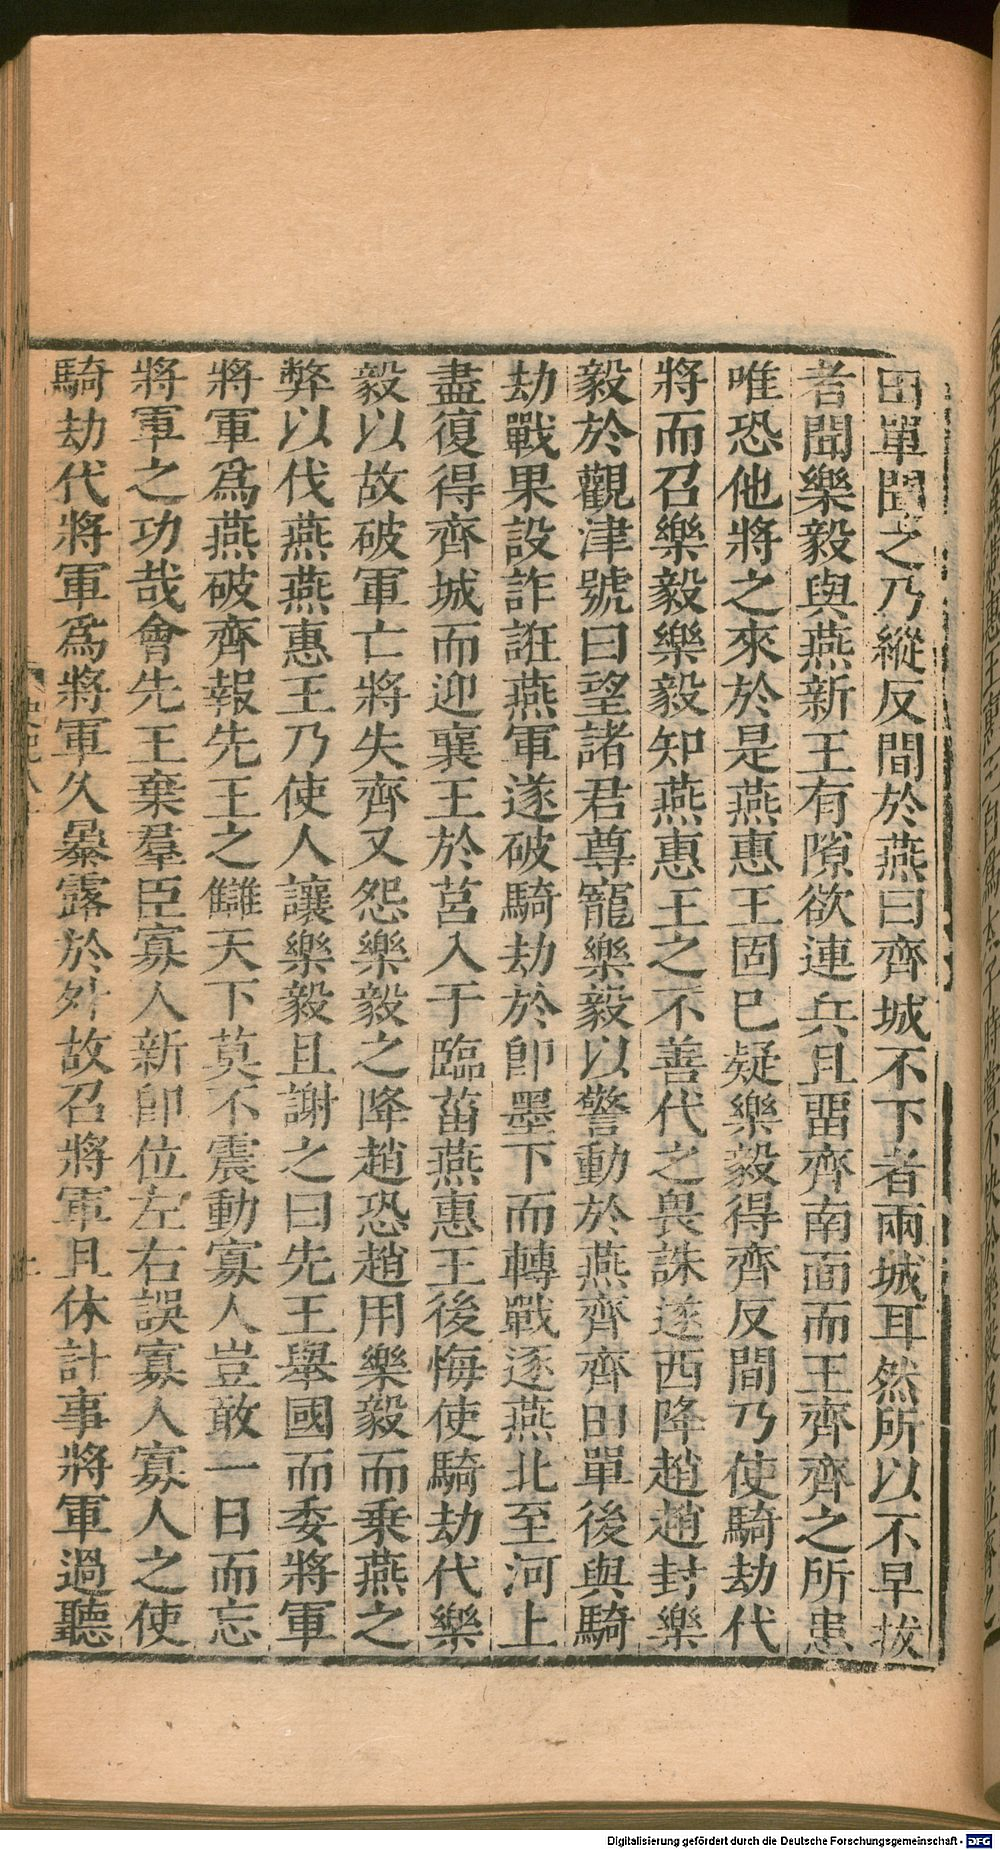 田單聞之乃縱反間於燕曰齊城不下者兩城耳然所以不早拔
者聞樂毅與燕新王有隙欲連兵且畱齊南面而王齊齊之所患
唯恐他將之來於是燕惠王固已疑樂毅得齊反間乃使騎劫代
將而召樂毅樂毅知燕惠王之不善代之畏誅遂西降趙趙封樂
毅於觀津號曰望諸君尊寵樂毅以警動於燕齊齊田單後與騎
劫戰果設詐誑燕軍遂破騎劫於卽墨下而轉戰逐燕北至河上
盡復得齊城而迎襄王於莒入于臨菑燕惠王後悔使騎劫代樂
毅以故破軍亡將失齊又怨樂毅之降趙恐趙用樂毅而乗燕之
弊以伐燕燕惠王乃使人讓樂毅且謝之曰先王舉國而委將軍
將軍爲燕破齊報先王之讎天下莫不震動寡人豈敢一日而忘
將軍之功哉會先王棄羣臣寡人新卽位左右誤寡人寡人之使
騎劫代將軍爲將軍久暴露於外故召將軍且休計事將軍過聽
Digitalisierung gefördert durch die Deutsche Forschungsgemeinschaft - DFG